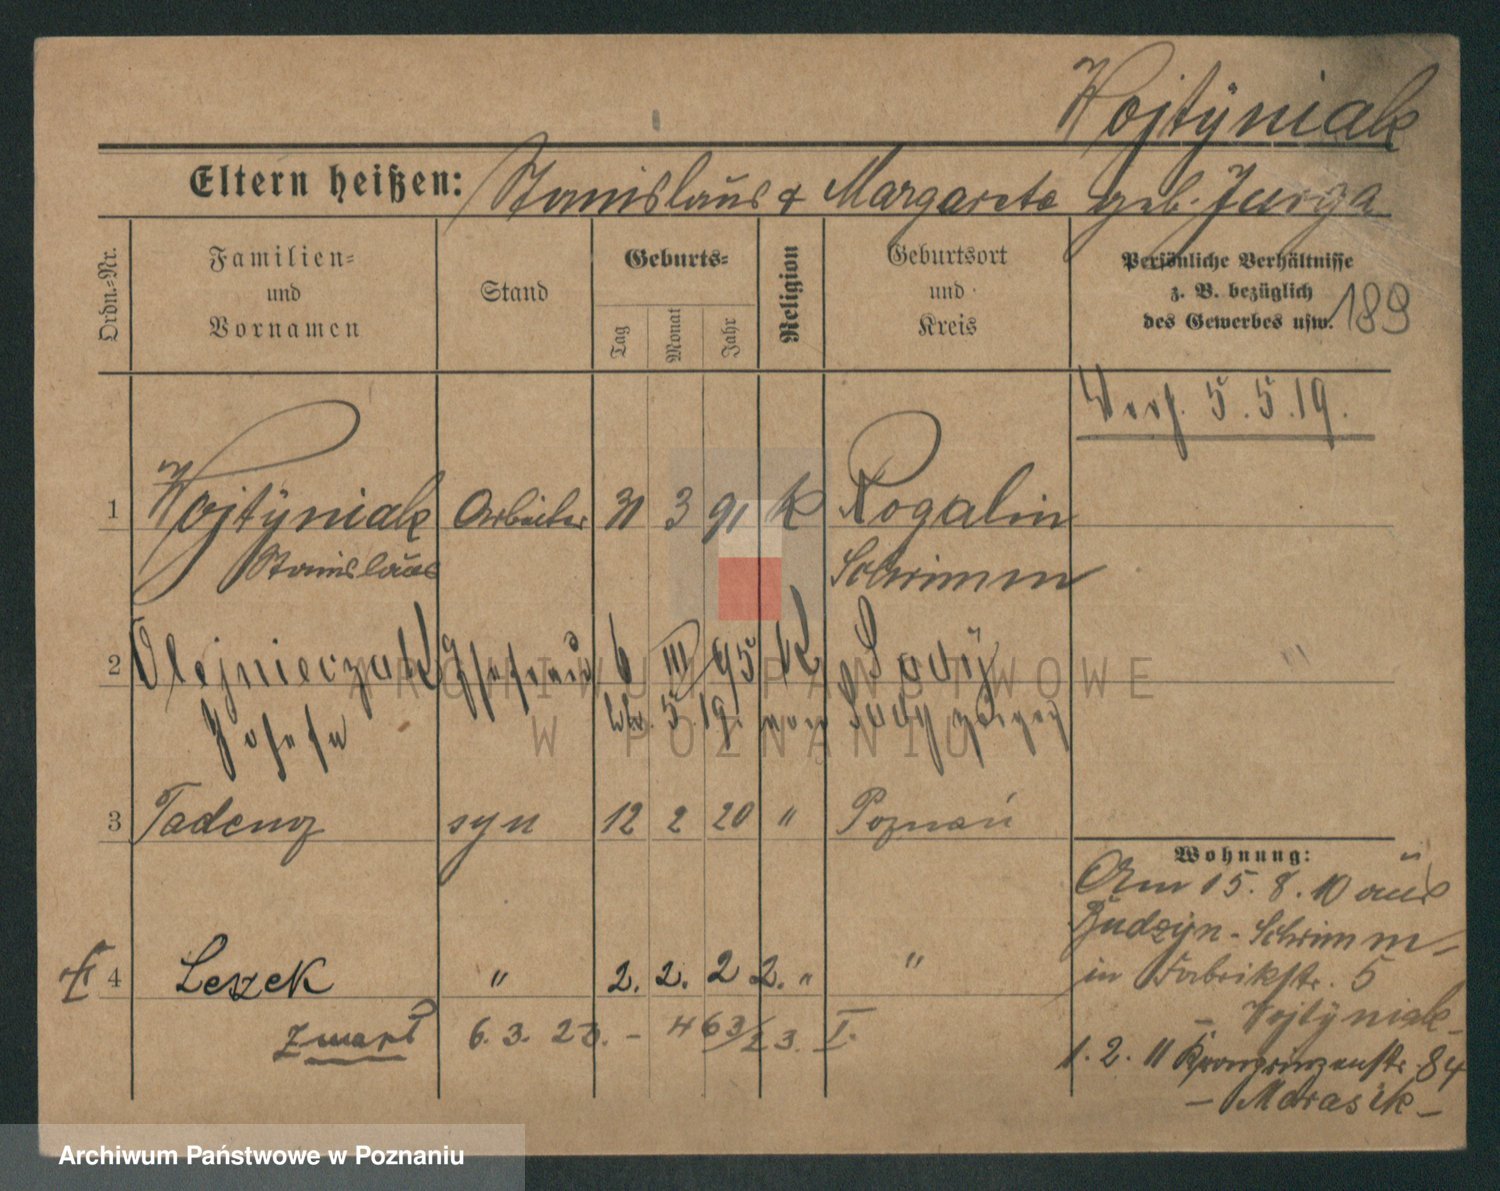 Wojtÿniak
Eltern heißen: Stanislaus & Margareta geb. Jurga
Ordn.-Nr.
Familien-
und
Vornamen
Stand
Geburts-
Tag
Monat
Jahr
Religion
Geburtsort
und
Kreis
Persönliche Verhältnisse
z. B. bezüglich
des Gewerbes usw.
189
5.5.19.
1 Wojtÿniak Arbeiter 31 3 91 k Rogalin
Stanislaus Schrimm
2 Olejnieczak Ehefrau 6 III 95 K Sady
Josefa 5. 19. von Sady
3 Tadeusz syn 12 2 20 " Poznań
Wohnung:
Am 15. 8. 10 aus
Budzyn - Schrimm -
in Fabrikstr. 5
- Wojtÿniak -
4 Leszek " 2. 2. 22. " "
zmarł 6. 3. 23. - 463/23. I.
1. 2. 11 Kronprinzenstr. 84
- Marasek -
ARCHIWUM PAŃSTWOWE
W POZNANIU
Archiwum Państwowe w Poznaniu